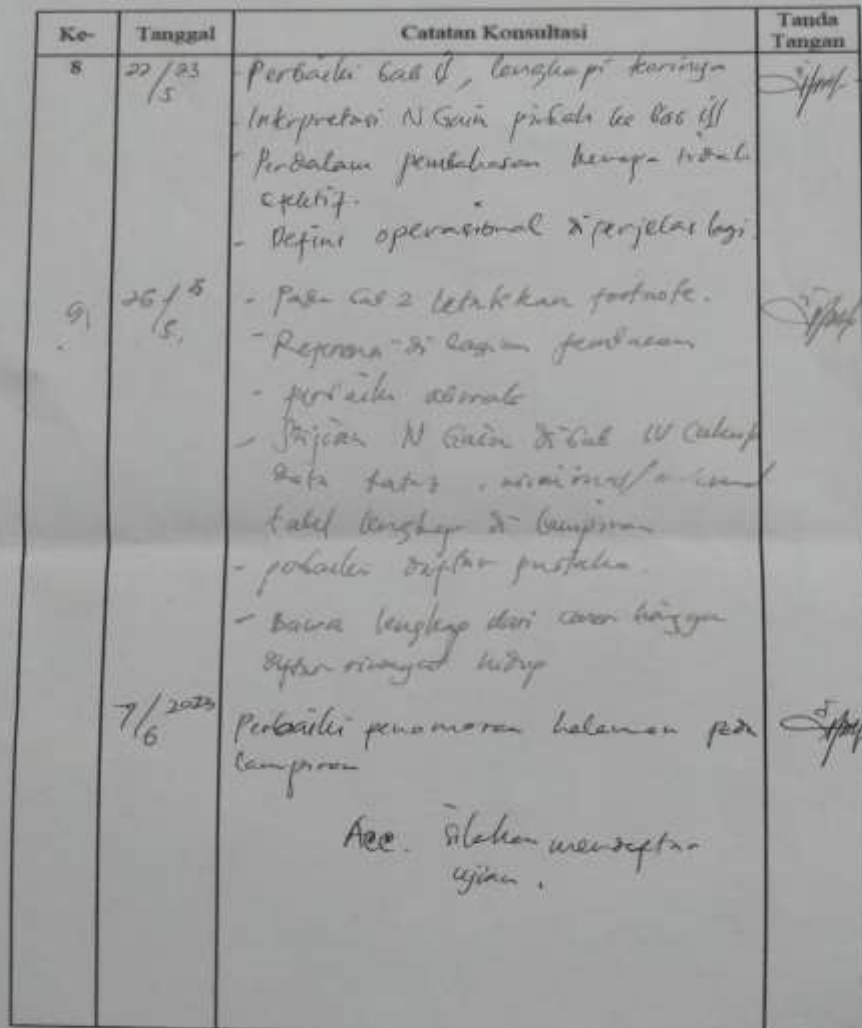 Ke- Tanggal Catatan Konsultasi Tanda Tangan
8 22/5 23 - Perbaiki bab II, lengkapi teorinya
- Interpretasi N Gain pindah ke bab III
- Perdalam pembahasan kenapa tidak
efektif.
- Defini operasional diperjelas lagi.
9. 26/5 - Pada bab 2 letakkan footnote.
- Referensi di bagian
- perbaiki abstrak
- Sajian N Gain di bab IV cukup
data
tabel lengkap di lampiran
- perbaiki daftar pustaka.
- Bawa lengkap dari cover hingga
daftar riwayat hidup
7/6 2023 Perbaiki penomoran halaman pada
lampiran
Acc. Silahkan mendaftar
ujian.